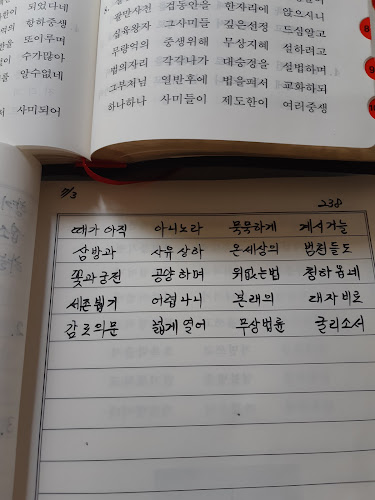 되었다네
항하중생
또이루며
수가많아
알수없네
사미되어
겁동안을 한자리에 앉으시니
십육왕자 그사미들 깊은선정 드심알고
무량억의 중생위해 무상지혜 설하려고
법의자리 각각나가 대승경을 설법하며
그부처님 열반후에 법을펴서 교화하되
하나하나 사미들이 제도한이 여러중생
238
때가 아직 아니노라 묵묵하게 계시거늘
삼방과 사유 상하 온 세상의 범천들도
꽃과 궁전 공양하며 위없는 법 청하옵네
세존 뵙기 어렵나니 본래의 대자비로
감로의 문 넓게 열어 무상법륜 굴리소서